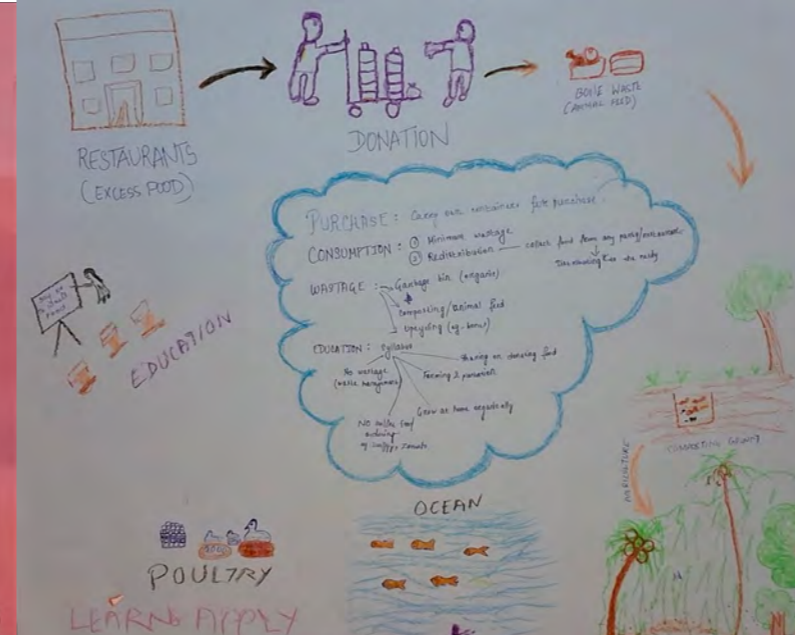 RESTAURANTS
(EXCESS FOOD)
DONATION
BONE WASTE
(ANIMAL FEED)
PURCHASE: Carry own containers for purchase.
CONSUMPTION: ① Minimum wastage
② Redistribution — collect food from any party/restaurant
to the needy
WASTAGE: Garbage bin (organic)
Composting/animal feed
Upcycling (eg. bones)
EDUCATION: Syllabus
Sharing or donating food
No wastage
(waste management)
Farming
Grow at home organically
No
ordering
EDUCATION
COMPOSTING
AGRICULTURE
OCEAN
POULTRY
LEARN & APPLY